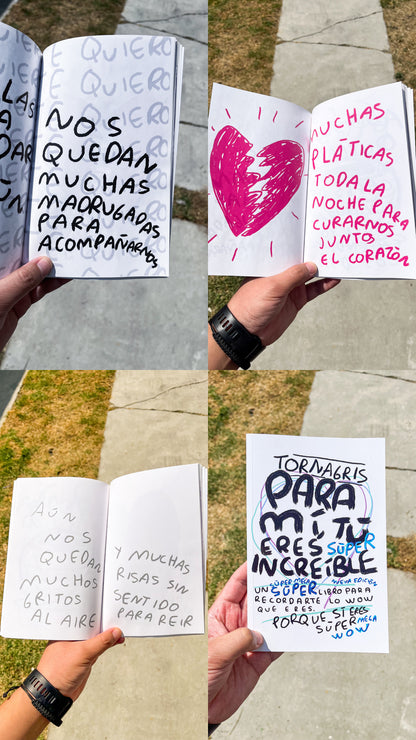 QUIERO
QUIERO
QUIERO
NOS
QUEDAN
MUCHAS
MADRUGADAS
PARA
ACOMPAÑARNOS
MUCHAS
PLÁTICAS
TODA LA
NOCHE PARA
CURARNOS
JUNTOS
EL CORAZÓN
AÚN
NOS
QUEDAN
MUCHOS
GRITOS
AL AIRE
Y MUCHAS
RISAS SIN
SENTIDO
PARA REIR
TORNAGRIS
PARA
MÍ TÚ
ERES SÚPER
INCREÍBLE
SÚPER MEGA NUEVA EDICIÓN
UN SÚPER LIBRO PARA
RECORDARTE LO WOW
QUE ERES.
PORQUE SÍ ERES
SÚPER MEGA
WOW